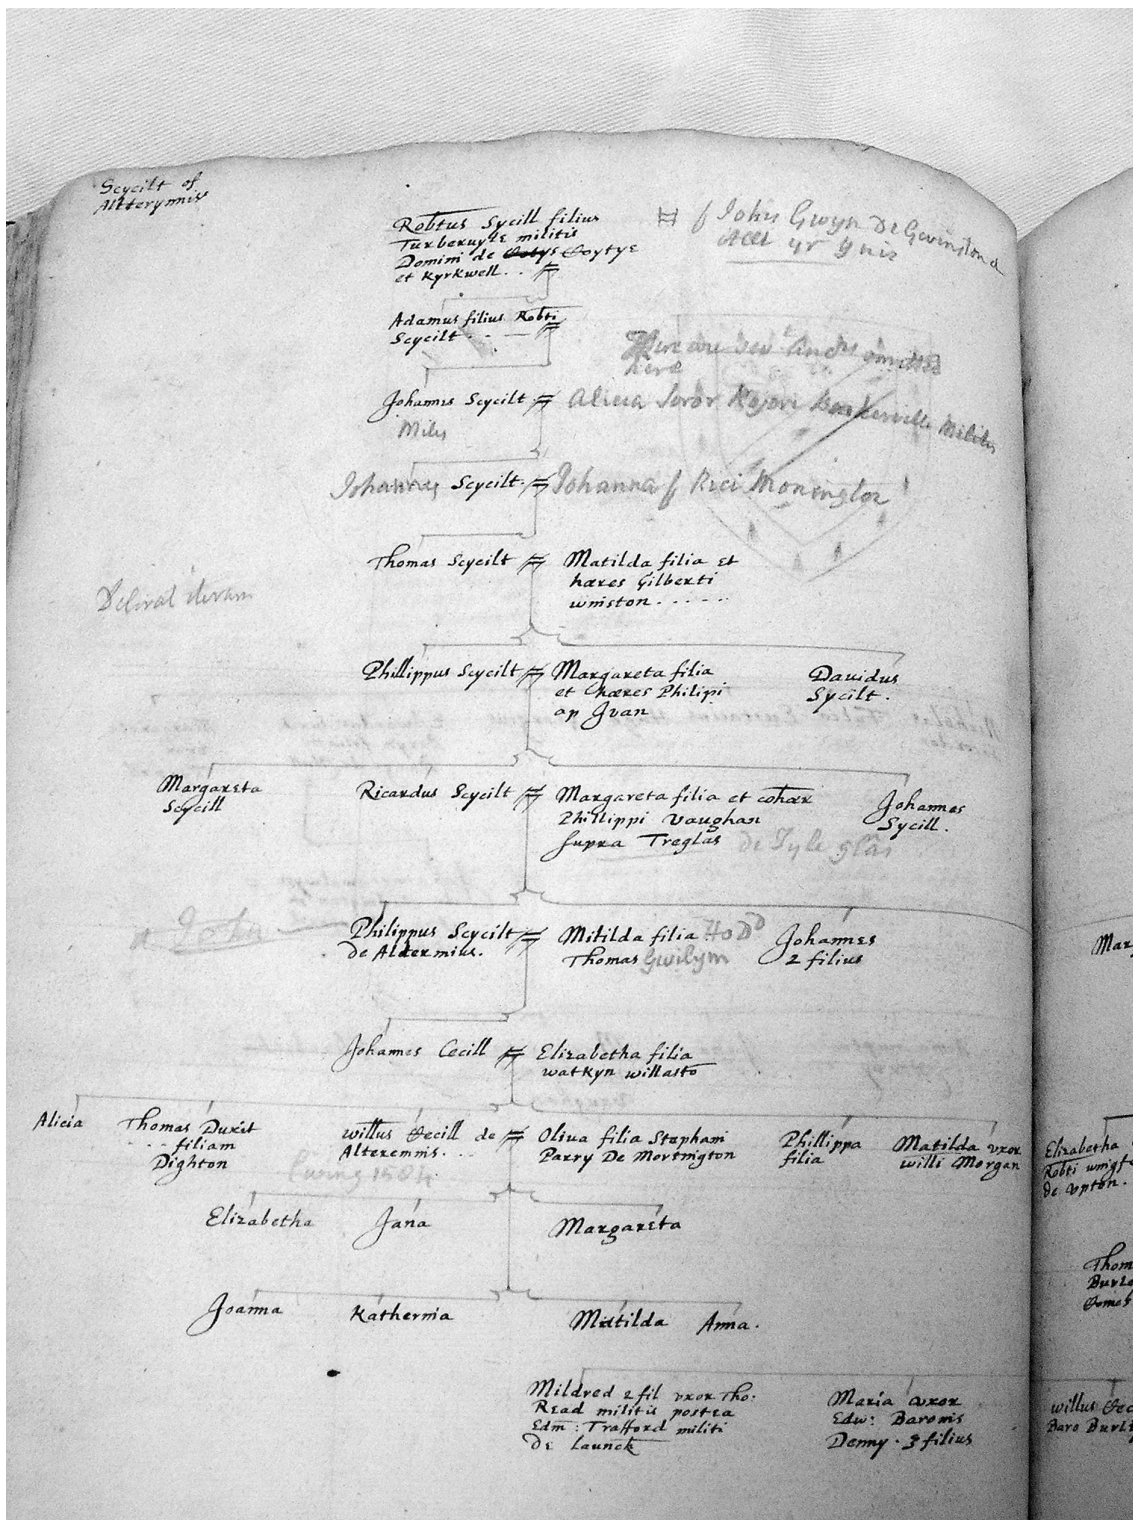 Scycilt of
Altterynnis
Robtus Sycill filius
Turberuyle militis
Domini de Eotys Eoytye
et Kyrkwell. .
John Gwyn De
yr ynis
Adamus filius Robti
Scycilt . . —
here
omitted
Johannis Scycilt
Miles
Alicia Soror Baskerville Militis
Johannes Scycilt
Johanna f Rici Monington
Thomas Scycilt
Matilda filia et
hæres Gilberti
winston. . . . . .
Delirat iterum
Phillippus Scycilt
Margareta filia
et hæres Philipi
ap Jvan
Dauidus
Sycilt .
Margareta
Scycill
Ricardus Scycilt
Margareta filia et cohær
Phillippi vaughan
supra Treglas de Tyle glas
Johannes
Sycill .
Philippus Scycilt
de Aldermius.
Mitilda filia
Thomas Gwilym
Johannes
2 filius
Mar
Johannes Cecill
Elizabetha filia
watkyn willasto
Alicia
Thomas Duxit
. . . filiam
Dighton
willus Cecill de
Alteremnis. . .
1584
Oliua filia Stephani
Parry De Mortington
Phillippa
filia
Matilda vxor
willi Morgan
Elizabetha
Robti
de vpton.
Elizabetha Jana Margareta
Joanna Katherina Matilda Anna.
Thom
Mildred 2 fil vxor Tho:
Read militis postea
Edm : Trafford militi
de Launck
Maria vxor
Edw: Baronis
Denny . 3 filius
willus Cec
Baro Burl